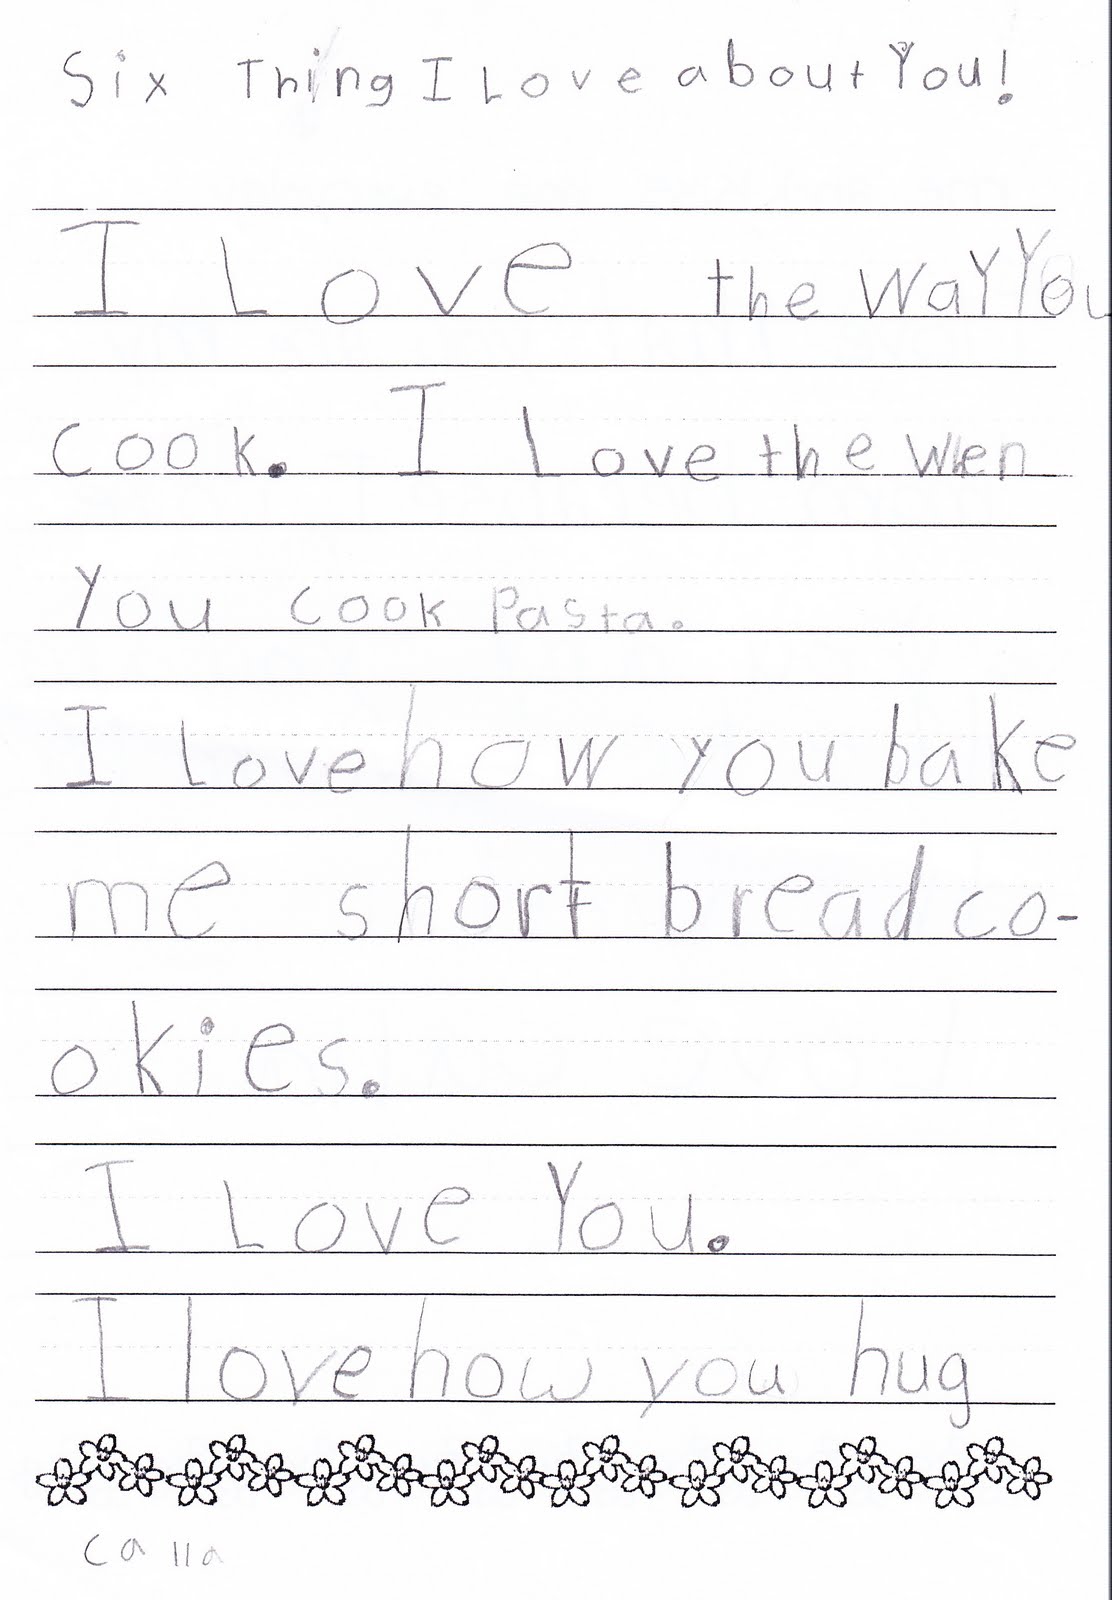 Six Thing I Love about You!
I Love the Way You
cook. I Love the wen
You cook Pasta.
I Love how you bake
me short bread co-
okies.
I Love You.
I love how you hug
calla